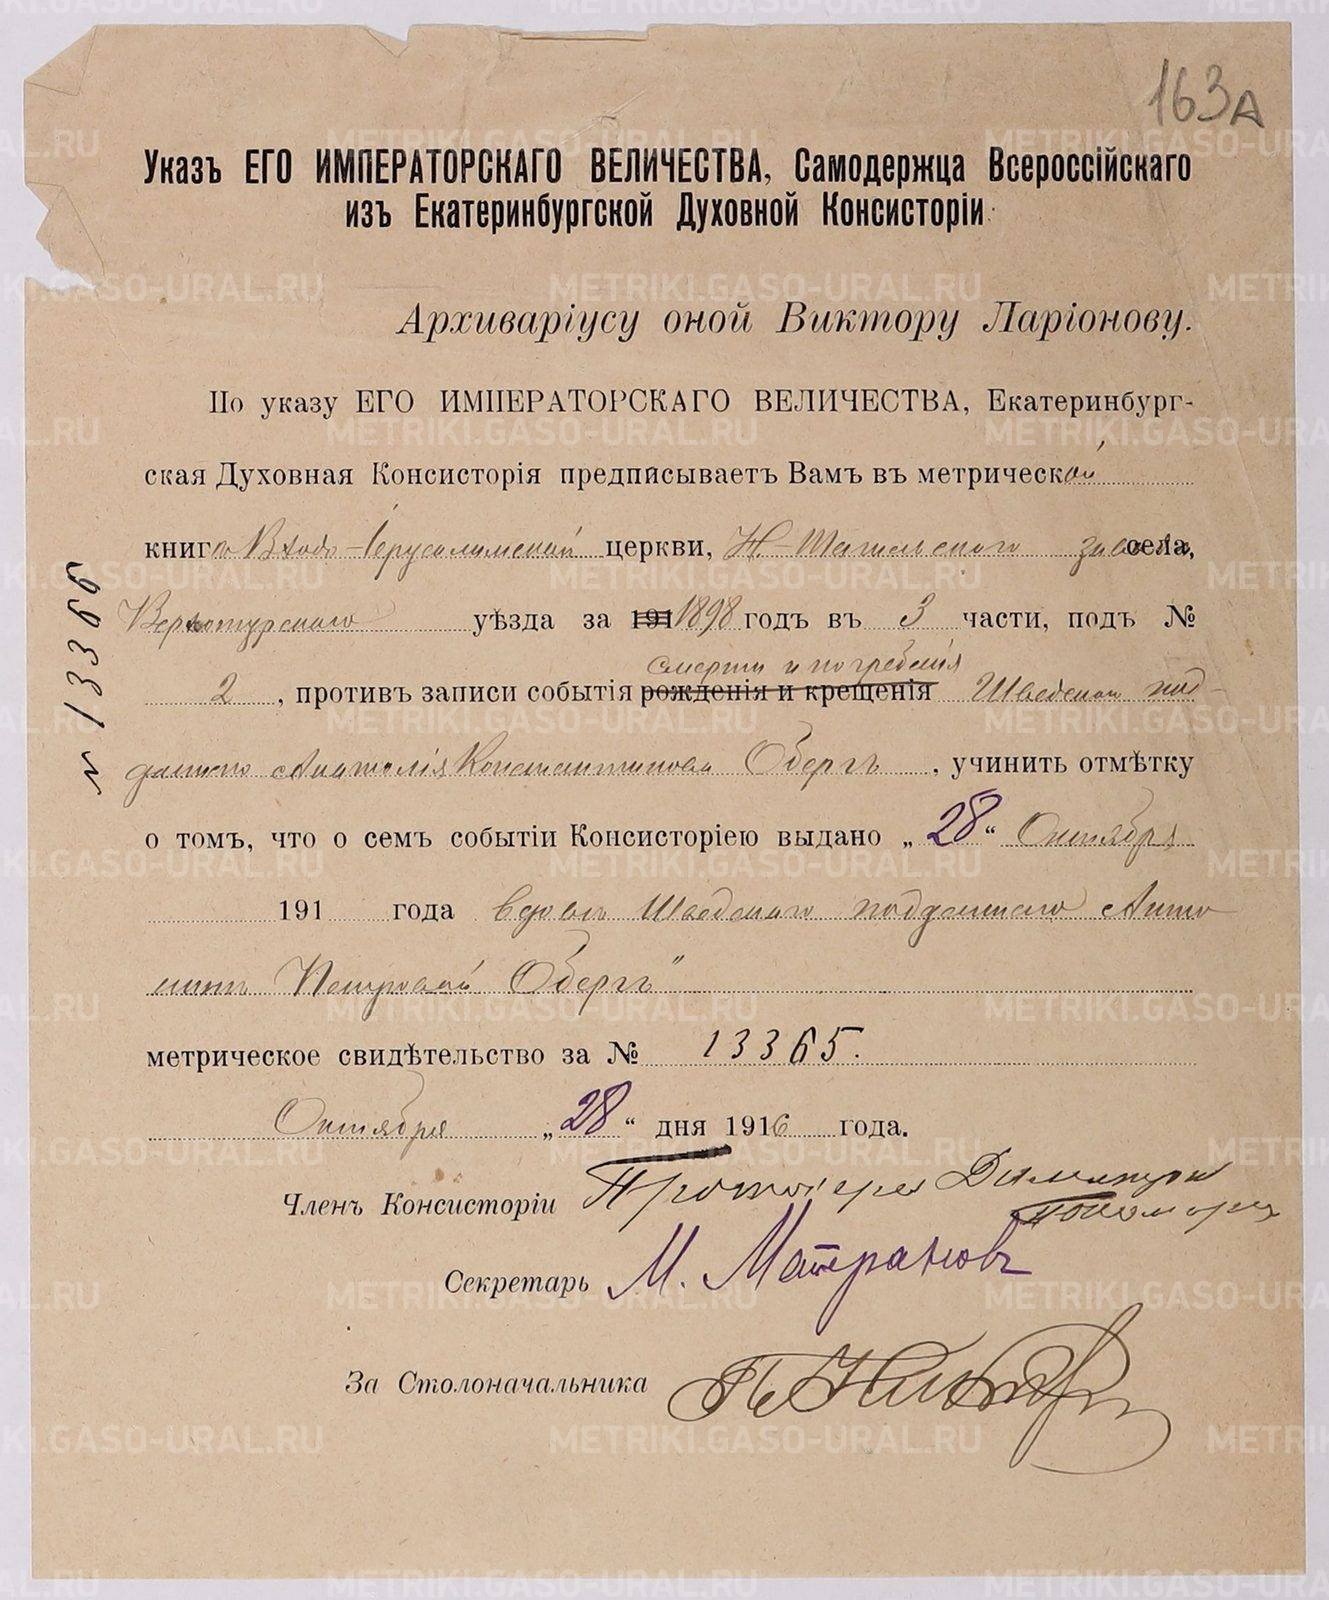 163А
Указъ ЕГО ИМПЕРАТОРСКАГО ВЕЛИЧЕСТВА, Самодержца Всероссійскаго
изъ Екатеринбургской Духовной Консисторіи
Архиваріусу оной Виктору Ларіонову.
По указу ЕГО ИМПЕРАТОРСКАГО ВЕЛИЧЕСТВА, Екатеринбург-
ская Духовная Консисторія предписываетъ Вамъ въ метрической
книгѣ Входо-Іерусалимской церкви, Н.-Тагильского завода села,
Верхотурского уѣзда за 191 1898 годъ въ 3 части, подъ №
смерти и погребенія
2, противъ записи событія рожденія и крещенія Шведскаго под-
даннаго Анатолія Константинова Обергъ, учинить отмѣтку
о томъ, что о семъ событіи Консисторіею выдано „28“ Октября
191 года вдовѣ Шведскаго подданнаго Анто
нинѣ Петровой Обергъ
метрическое свидѣтельство за № 13365.
Октября „28“ дня 1916 года.
№ 13366
Членъ Консисторіи Протоіерей Димитрій
Секретарь М. Матрановъ
За Столоначальника
METRIKI.GASO-URAL.RU